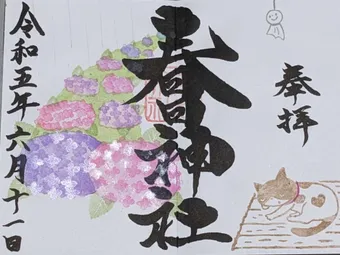 奉拝
春日神社
令和五年六月十一日